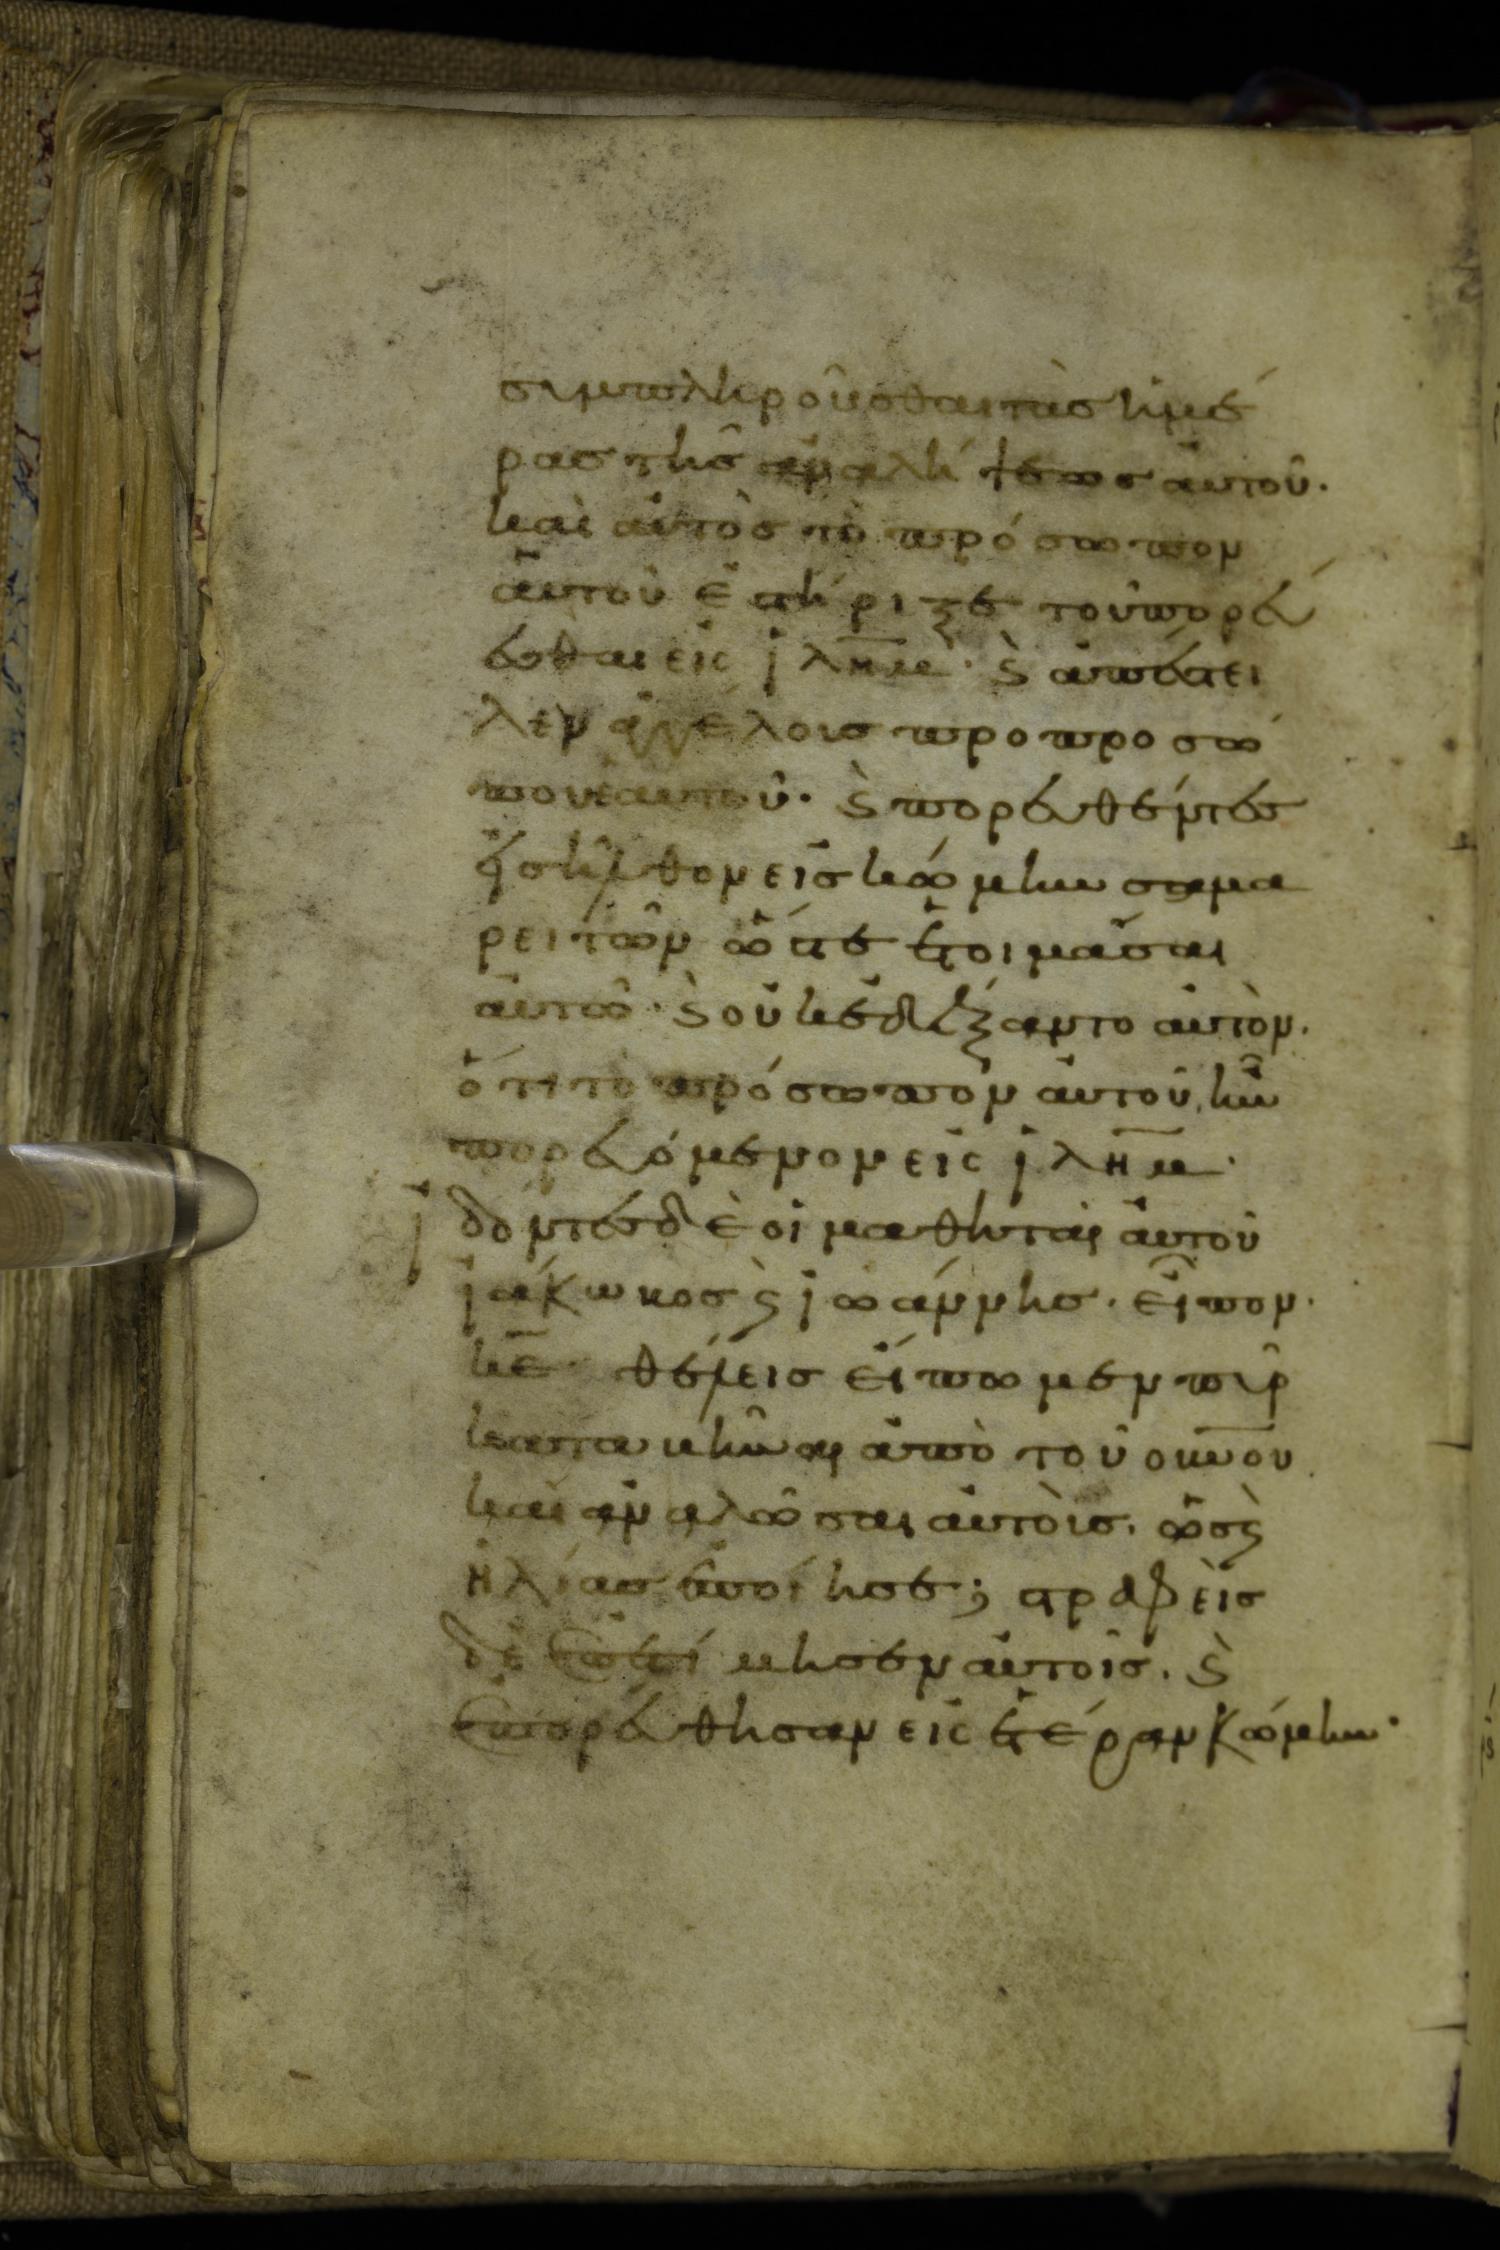 συμπληροῦσθαι τὰς ἡμέ
ρας τῆς ἀναλήψεως αὐτοῦ·
καὶ αὐτὸς τὸ πρόσωπον
αὐτοῦ ἐστήριξε τοῦ πορεύ
εσθαι εἰς ἰλῆμ· ϛ ἀπέστει
λεν ἀγγέλοις προ προσώ
που ἑαυτοῦ· ϛ πορευθέντες
εἰσῆλθον εἰς κώμην σαμα
ρειτῶν ὥστε ἑτοιμάσαι
αὐτῶ· ϛ οὐκ ἐδέξαντο αὐτὸν·
ὅτι τὸ πρόσωπον αὐτοῦ, ἦν
πορευόμενον εἰς ἰλῆμ·
ἰδόντες δὲ οἱ μαθηταὶ αὐτοῦ
ἰάκωβος ϛ ἰωάννης· εἶπον·
κε̅ θέλεις εἴπωμεν πῦρ
καταβῆναι ἀπὸ τοῦ ου̅νου
καὶ ἀναλῶσαι αὐτοὺς· ὡς ϛ
ἠλίας ἐποίησε; στραφεὶς
δὲ ἐπετίμησεν αὐτοῖς· ϛ
ἐπορεύθησαν εἰς ἑτέραν κώμην·